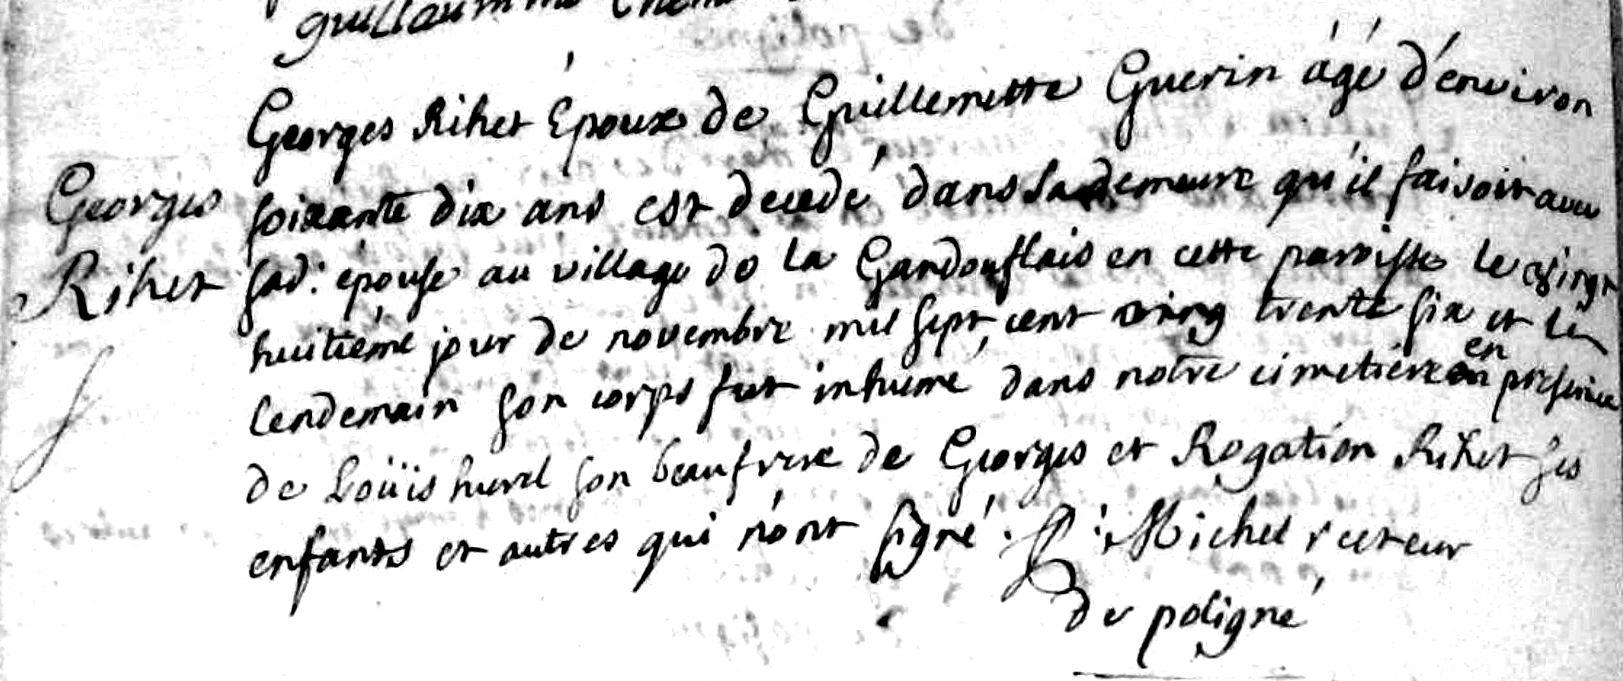 guillaumme
Georges Rihet Époux de Guillemette Guerin ágé d'environ
Georges
soixante dix ans est decedé dans sa demeure qu'il faisoit avec
Rihet
sad: epouse au village de la Gandouflais en cette paroisse le vingt
huitiéme jour de novembre mil sept cent trente six et le
lendemain son corps fut inhumé dans notre cimetiere en presence
de Loüis huvel son beaufrere de Georges et Rogatien Rihet ses
enfants et autres qui n'ont signé. P: Michel recteur
de poligné